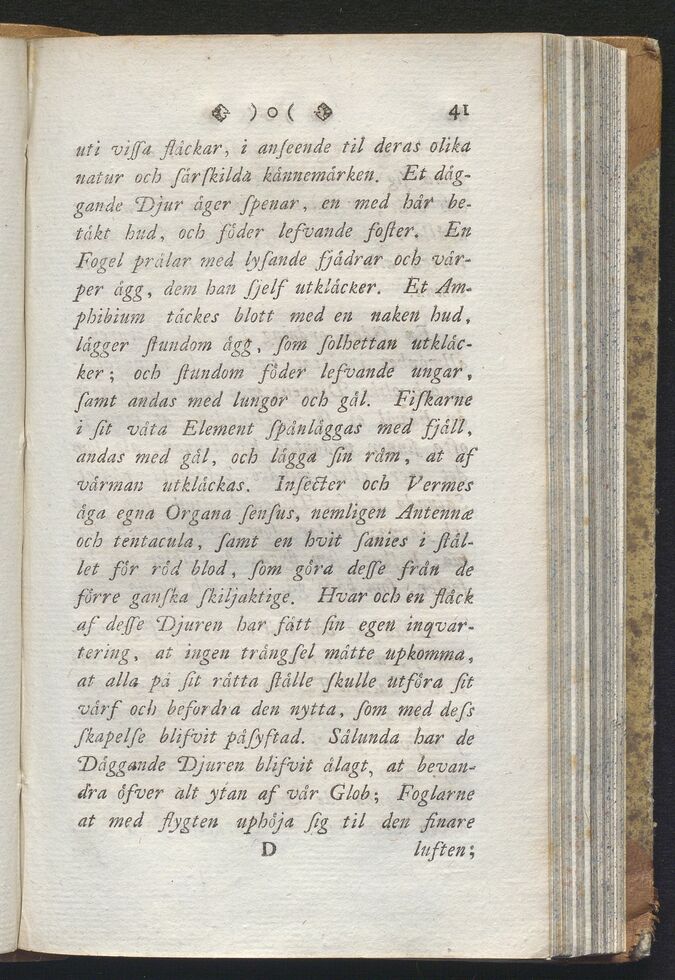 ) o ( 41
uti viſſa flåckar, i anſeende til deras olika
natur och ſårſkilda kånnemårken. Et dåg-
gande Djur åger ſpenar, en med hår be-
tåkt hud, och föder lefvande foſter. En
Fogel prålar med lyſande fjådrar och vår-
per ågg, dem han ſjelf utklåcker. Et Am-
phibium tåckes blott med en naken hud,
lågger ſtundom ågg, ſom ſolhettan utklåc-
ker; och ſtundom föder lefvande ungar,
ſamt andas med lungor och gål. Fiſkarne
i ſit våta Element ſpånlåggas med fjåll,
andas med gål, och lågga ſin råm, at af
vårman utklåckas. Inſecter och Vermes
åga egna Organa ſenſus, nemligen Antennæ
och tentacula, ſamt en hvit ſanies i ſtål-
let för röd blod, ſom göra deſſe från de
förre ganſka ſkiljaktige. Hvar och en flåck
af deſſe Djuren har fått ſin egen inqvar-
tering, at ingen trångſel måtte upkomma,
at alla på ſit råtta ſtålle ſkulle utföra ſit
vårf och befordra den nytta, ſom med deſs
ſkapelſe blifvit påſyftad. Sålunda har de
Dåggande Djuren blifvit ålagt, at bevan-
dra öfver alt ytan af vår Glob; Foglarne
at med flygten uphöja ſig til den finare
D luften;